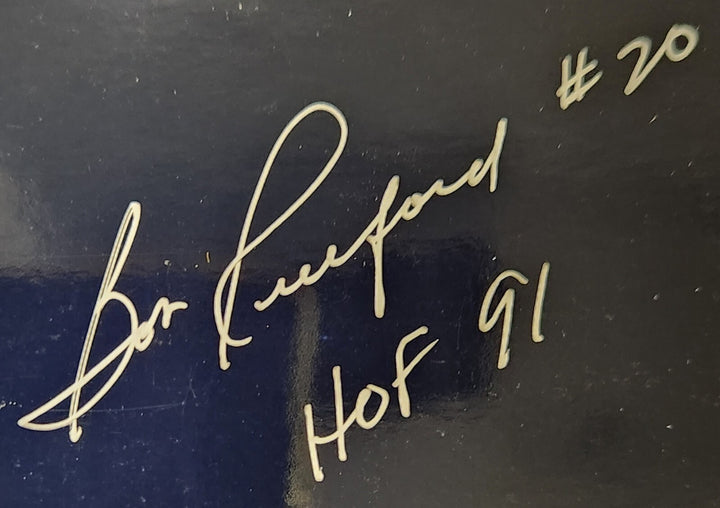 Bob Pulford #20
HOF 91